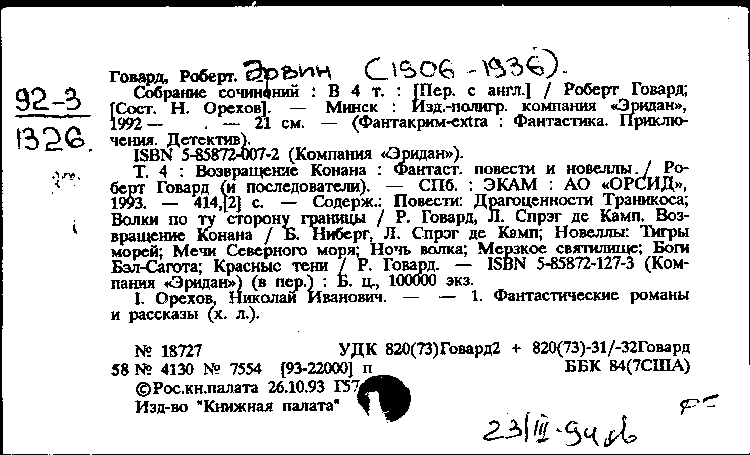 Говард, Роберт. Эрвин (1906-1936).
Собрание сочинений : В 4 т. : [Пер. с англ.] / Роберт Говард;
92-3
[Сост. Н. Орехов]. — Минск : Изд.-полигр. компания «Эридан»,
1992 — . — 21 см. — (Фантакрим-extra : Фантастика. Приклю-
1326
чения. Детектив).
ISBN 5-85872-007-2 (Компания «Эридан»).
Т. 4 : Возвращение Конана : Фантаст. повести и новеллы / Ро-
берт Говард (и последователи). — СПб. : ЭКАМ : АО «ОРСИД»,
1993. — 414,[2] с. — Содерж.: Повести: Драгоценности Траникоса;
Волки по ту сторону границы / Р. Говард, Л. Спрэг де Камп. Воз-
вращение Конана / Б. Ниберг, Л. Спрэг де Камп; Новеллы: Тигры
морей; Мечи Северного моря; Ночь волка; Мерзкое святилище; Боги
Бэл-Сагота; Красные тени / Р. Говард. — ISBN 5-85872-127-3 (Ком-
пания «Эридан») (в пер.) : Б. ц., 100000 экз.
I. Орехов, Николай Иванович. — — 1. Фантастические романы
и рассказы (х. л.).
№ 18727 УДК 820(73)Говард2 + 820(73)-31/-32Говард
58 № 4130 № 7554 [93-22000] п ББК 84(7США)
©Рос.кн.палата 26.10.93 Г57
Изд-во "Книжная палата"
23/III-94